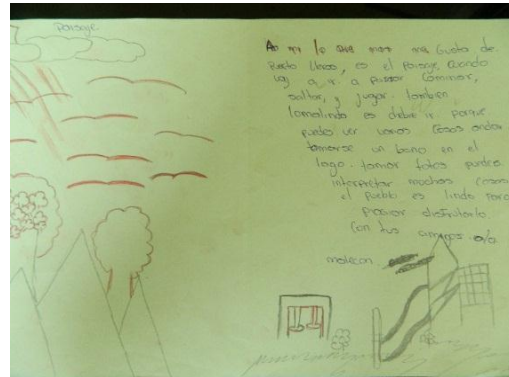 Paisaje
A mi lo que mas me Gusta de
Puerto , es el Paisaje cuando
voy a ir a pasear Caminar,
saltar, y jugar. tambien
lo mas lindo es debe ir porque
puedes ver varias Cosas andar
tomarse un baño en el
lago. tomar fotos puedes
interpretar muchas cosas
el Pueblo es lindo Para
pasear disfrutarlo
Con tus amigos
malecon